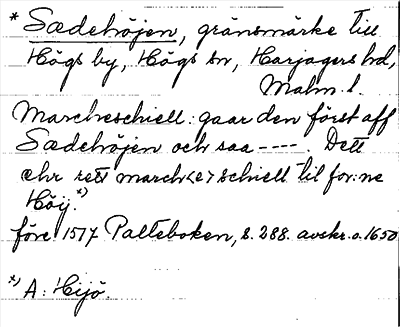 * Sædehöjen, gränsmärke till
Högs by, Högs sn, Harjagers hd,
Malm. l.
Marcheschiell: gaar den först aff
Sædehöjen och saa ----. Dett
ehr rett march<e>schiell til for:ne
Höij.*)
före 1517 Palteboken, s. 288. avskr. o. 1650
*) A: Hijö.